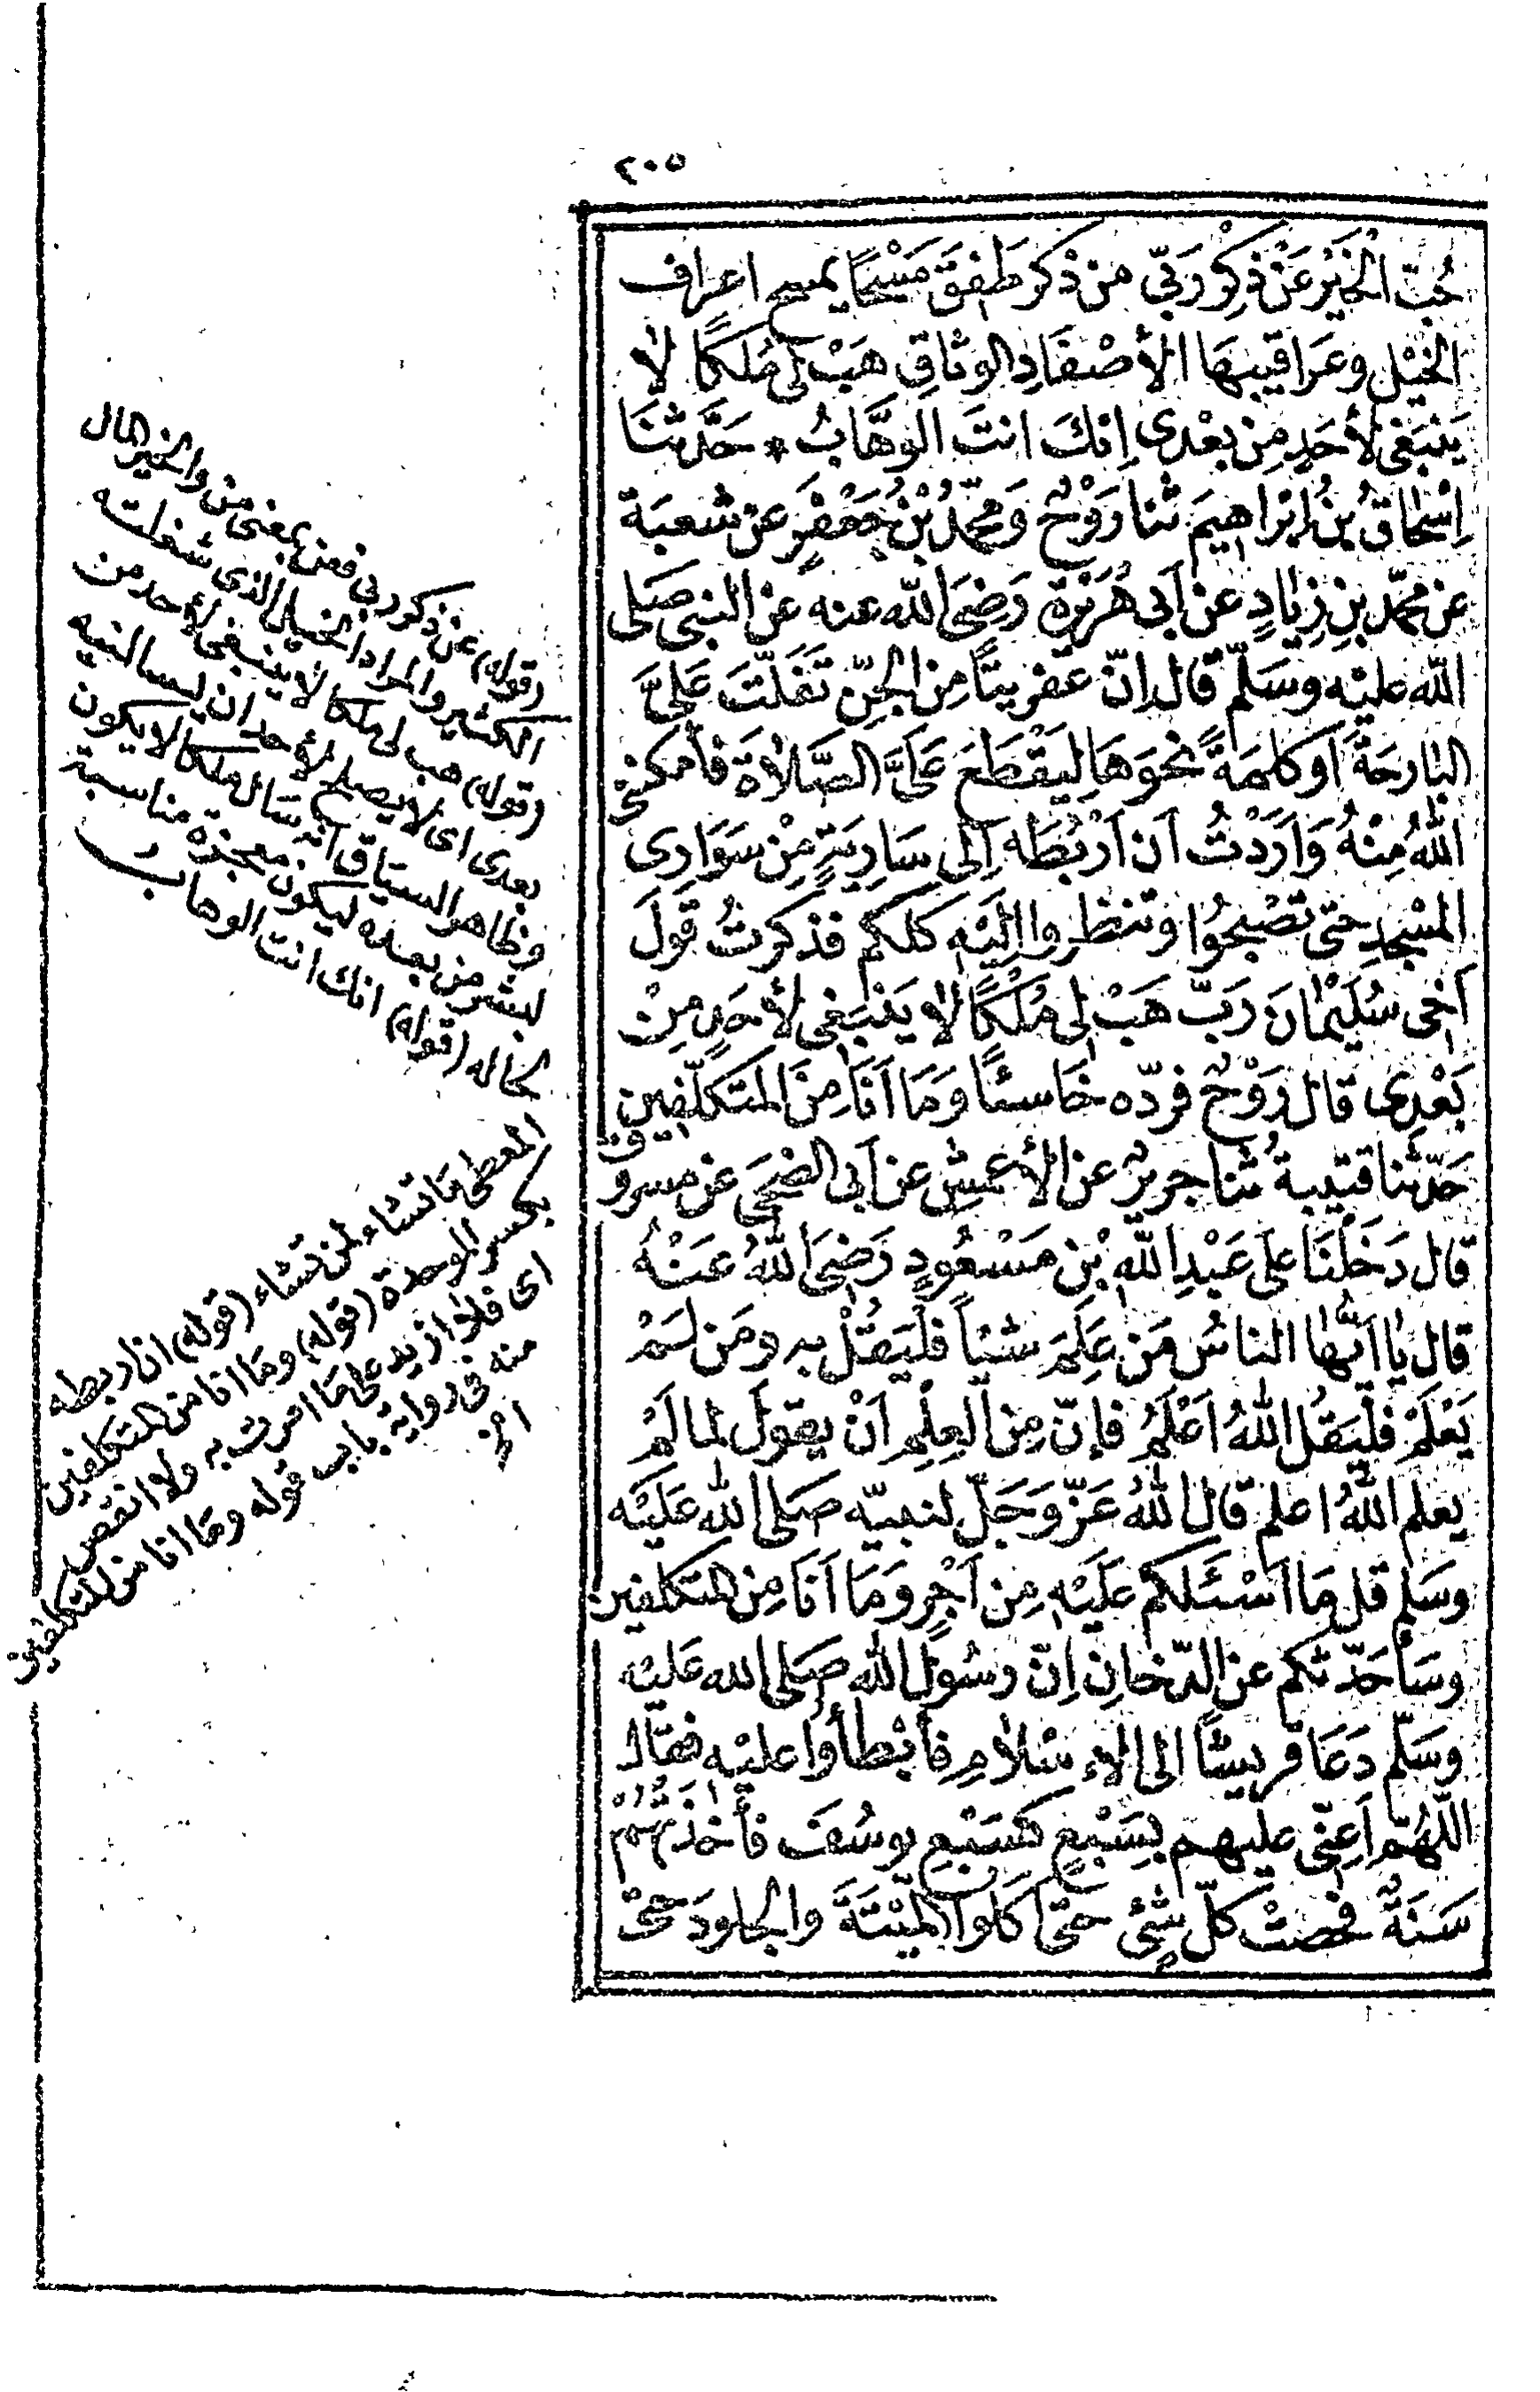 ٢٠٥
حُبَّ الْخَيْرِ عَنْ ذِكْرِ رَبِّى مِنْ ذِكْرِ طَفِقَ مَسْحًا يمسح اعراف
الخَيْلِ وعَرَاقيبَهَا الأَصْفَادِ الوثاقِ هَبْ لى مُلْكًا لا
يَنْبَغى لأَحَدٍ مِنْ بعْدى اِنّكَ انتَ الوَهَّابُ * حَدَّثنَا
اِسْحاقُ بنُ اِبْراهيمَ ثنا رَوْحٌ وَمحمّدُ بْنُ جَعْفَرٍ عن شعبَة
عن محمّد بنِ زِيادٍ عن اَبى هُرَيْرَةَ رَضِىَ الله عنه عن النبى صَلى
الله عليْه وسَلّمْ قال اِنّ عفريتًا مِنَ الجِنِّ تَفَلَّتَ عَلىَّ
البارحَةَ اَو كلمَةً نحوَهَا لِيَقْطَعَ عَلَىَّ الصَّلاةَ فأمكننى
اللهُ مِنْهُ وَاَرَدْتُ اَن اَرْبُطَه اِلى سَارِيَةٍ مِنْ سَوَارى
المسْجدِ حتى تصْبحُوا وتنظروا اِليْهِ كلكم فذكرتُ قَوْلَ
اَخى سُلَيْمانَ رَبّ هَبْ لى مُلْكًا لا يَنْبَغى لأَحَدٍ مِنْ
بَعْدِى قال رَوْحٌ فردّه خَاسئًا وَمَا اَنَا مِنَ المتكلّفين
حَدّثنا قتيبةُ ثنا جريرٌ عن الأعمشِ عن اَبى الضُحَى عن مسروق
قال دَخَلْنَا عَلى عَبْدِ اللهِ بْنِ مَسْعُودٍ رَضِىَ اللهُ عَنْهُ
قال يا اَيُّها الناسُ مَن عَلِمَ شيئاً فلْيَقُلْ به ومَن لَمْ
يَعْلَمْ فلْيَقُل اللهُ اَعْلَمُ فإنّ مِن العِلْمِ اَنْ يقولَ لما لَمْ
يعلم اللهُ اعلم قال اللهُ عَزّ وَجَلّ لنبيّه صَلى الله عَلَيْه
وسَلم قل مَا اَسْئَلكمْ عَلَيْهِ مِن اَجْرٍ وَمَا اَنَا مِن المتكلفين
وسَأحَدّثكم عن الدّخانِ اِنّ رسُول الله صَلى الله عَليْه
وسَلّم دَعَا قريشًا الى الإسْلامِ فأبْطأوا عليْه فقال
اللّهُمّ اَعِنّى عليهم بِسَبْعٍ كَسَبْعِ يوسُفَ فأخذَتْهُمْ
سَنَةٌ فحصتْ كلّ شئ حتى اَكَلوا الميْتَةَ والجلودَ حتى
(قوله) عن ذكر ربى فعن بمعنى من والخير المال
الكثير والمراد الخيل الذى شغلته
(قوله) هب لى ملكا لا ينبغى لأحد من
بعدى اى لا يصلح لأحد ان يسالنيه
وظاهر السياق انه سال ملكا لا يكون
لبشر من بعده ليكون معجزة مناسبة
لحاله (قوله) انك انت الوهاب
المعطى ما تشاء لمن تشاء (قوله) ان اربطه
بكسر الموحدة (قوله) وما انا من المتكلفين
اى فلا ازيد على ما امرت به ولا انقص
منه فى رواية باب قوله وما انا من المتكلفين
الخ